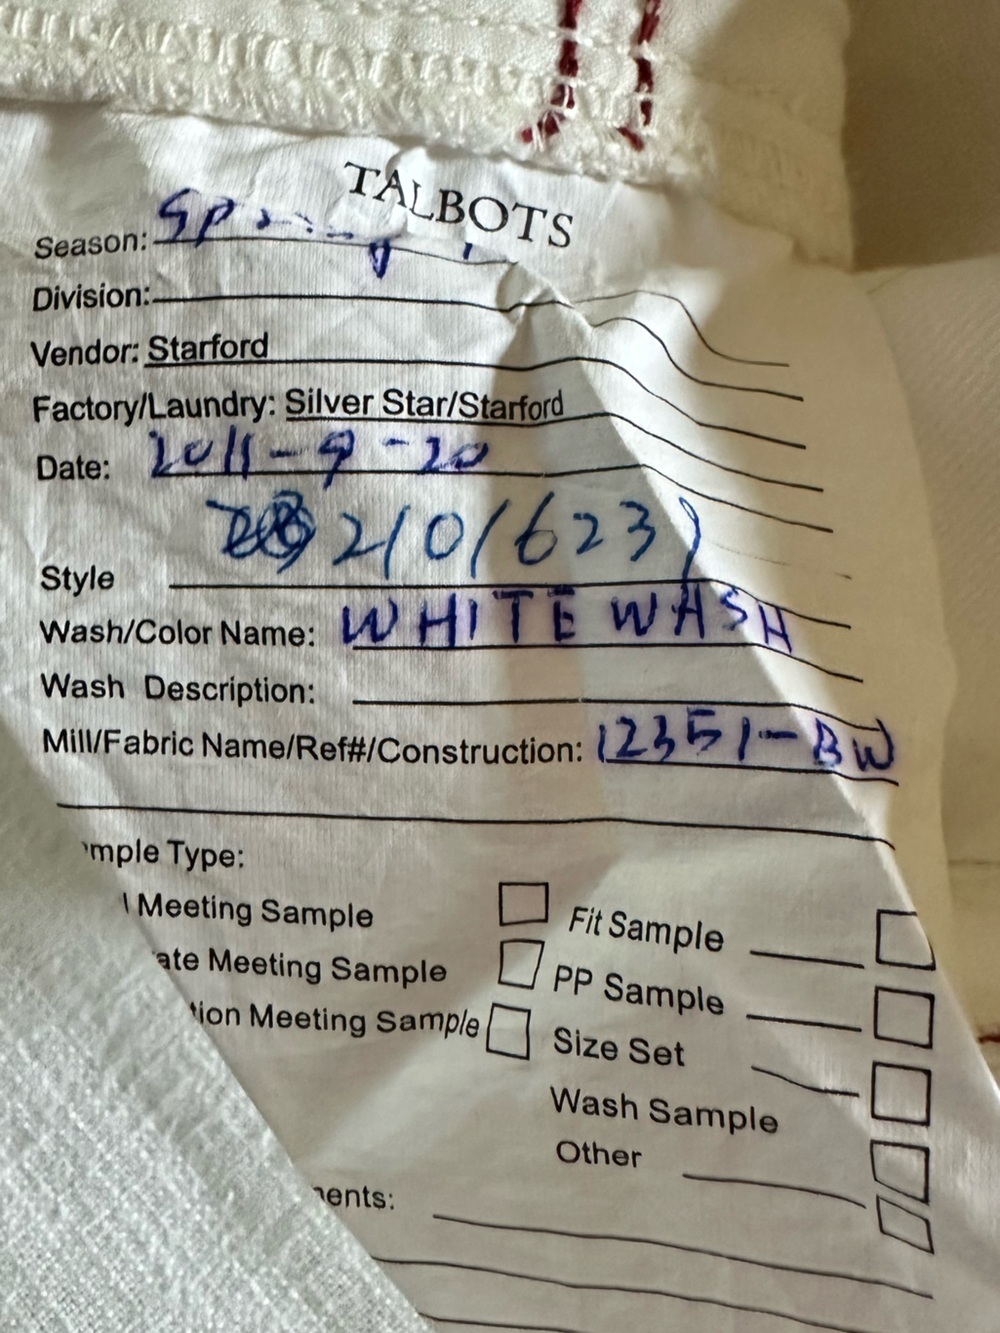 TALBOTS
Season: Spring
Division:
Vendor: Starford
Factory/Laundry: Silver Star/Starford
Date: 2011-9-20
Style 21016239
Wash/Color Name: WHITE WASH
Wash Description:
Mill/Fabric Name/Ref#/Construction: 12351-BW
mple Type:
Meeting Sample
Fit Sample
ate Meeting Sample
PP Sample
tion Meeting Sample
Size Set
Wash Sample
Other
ents: